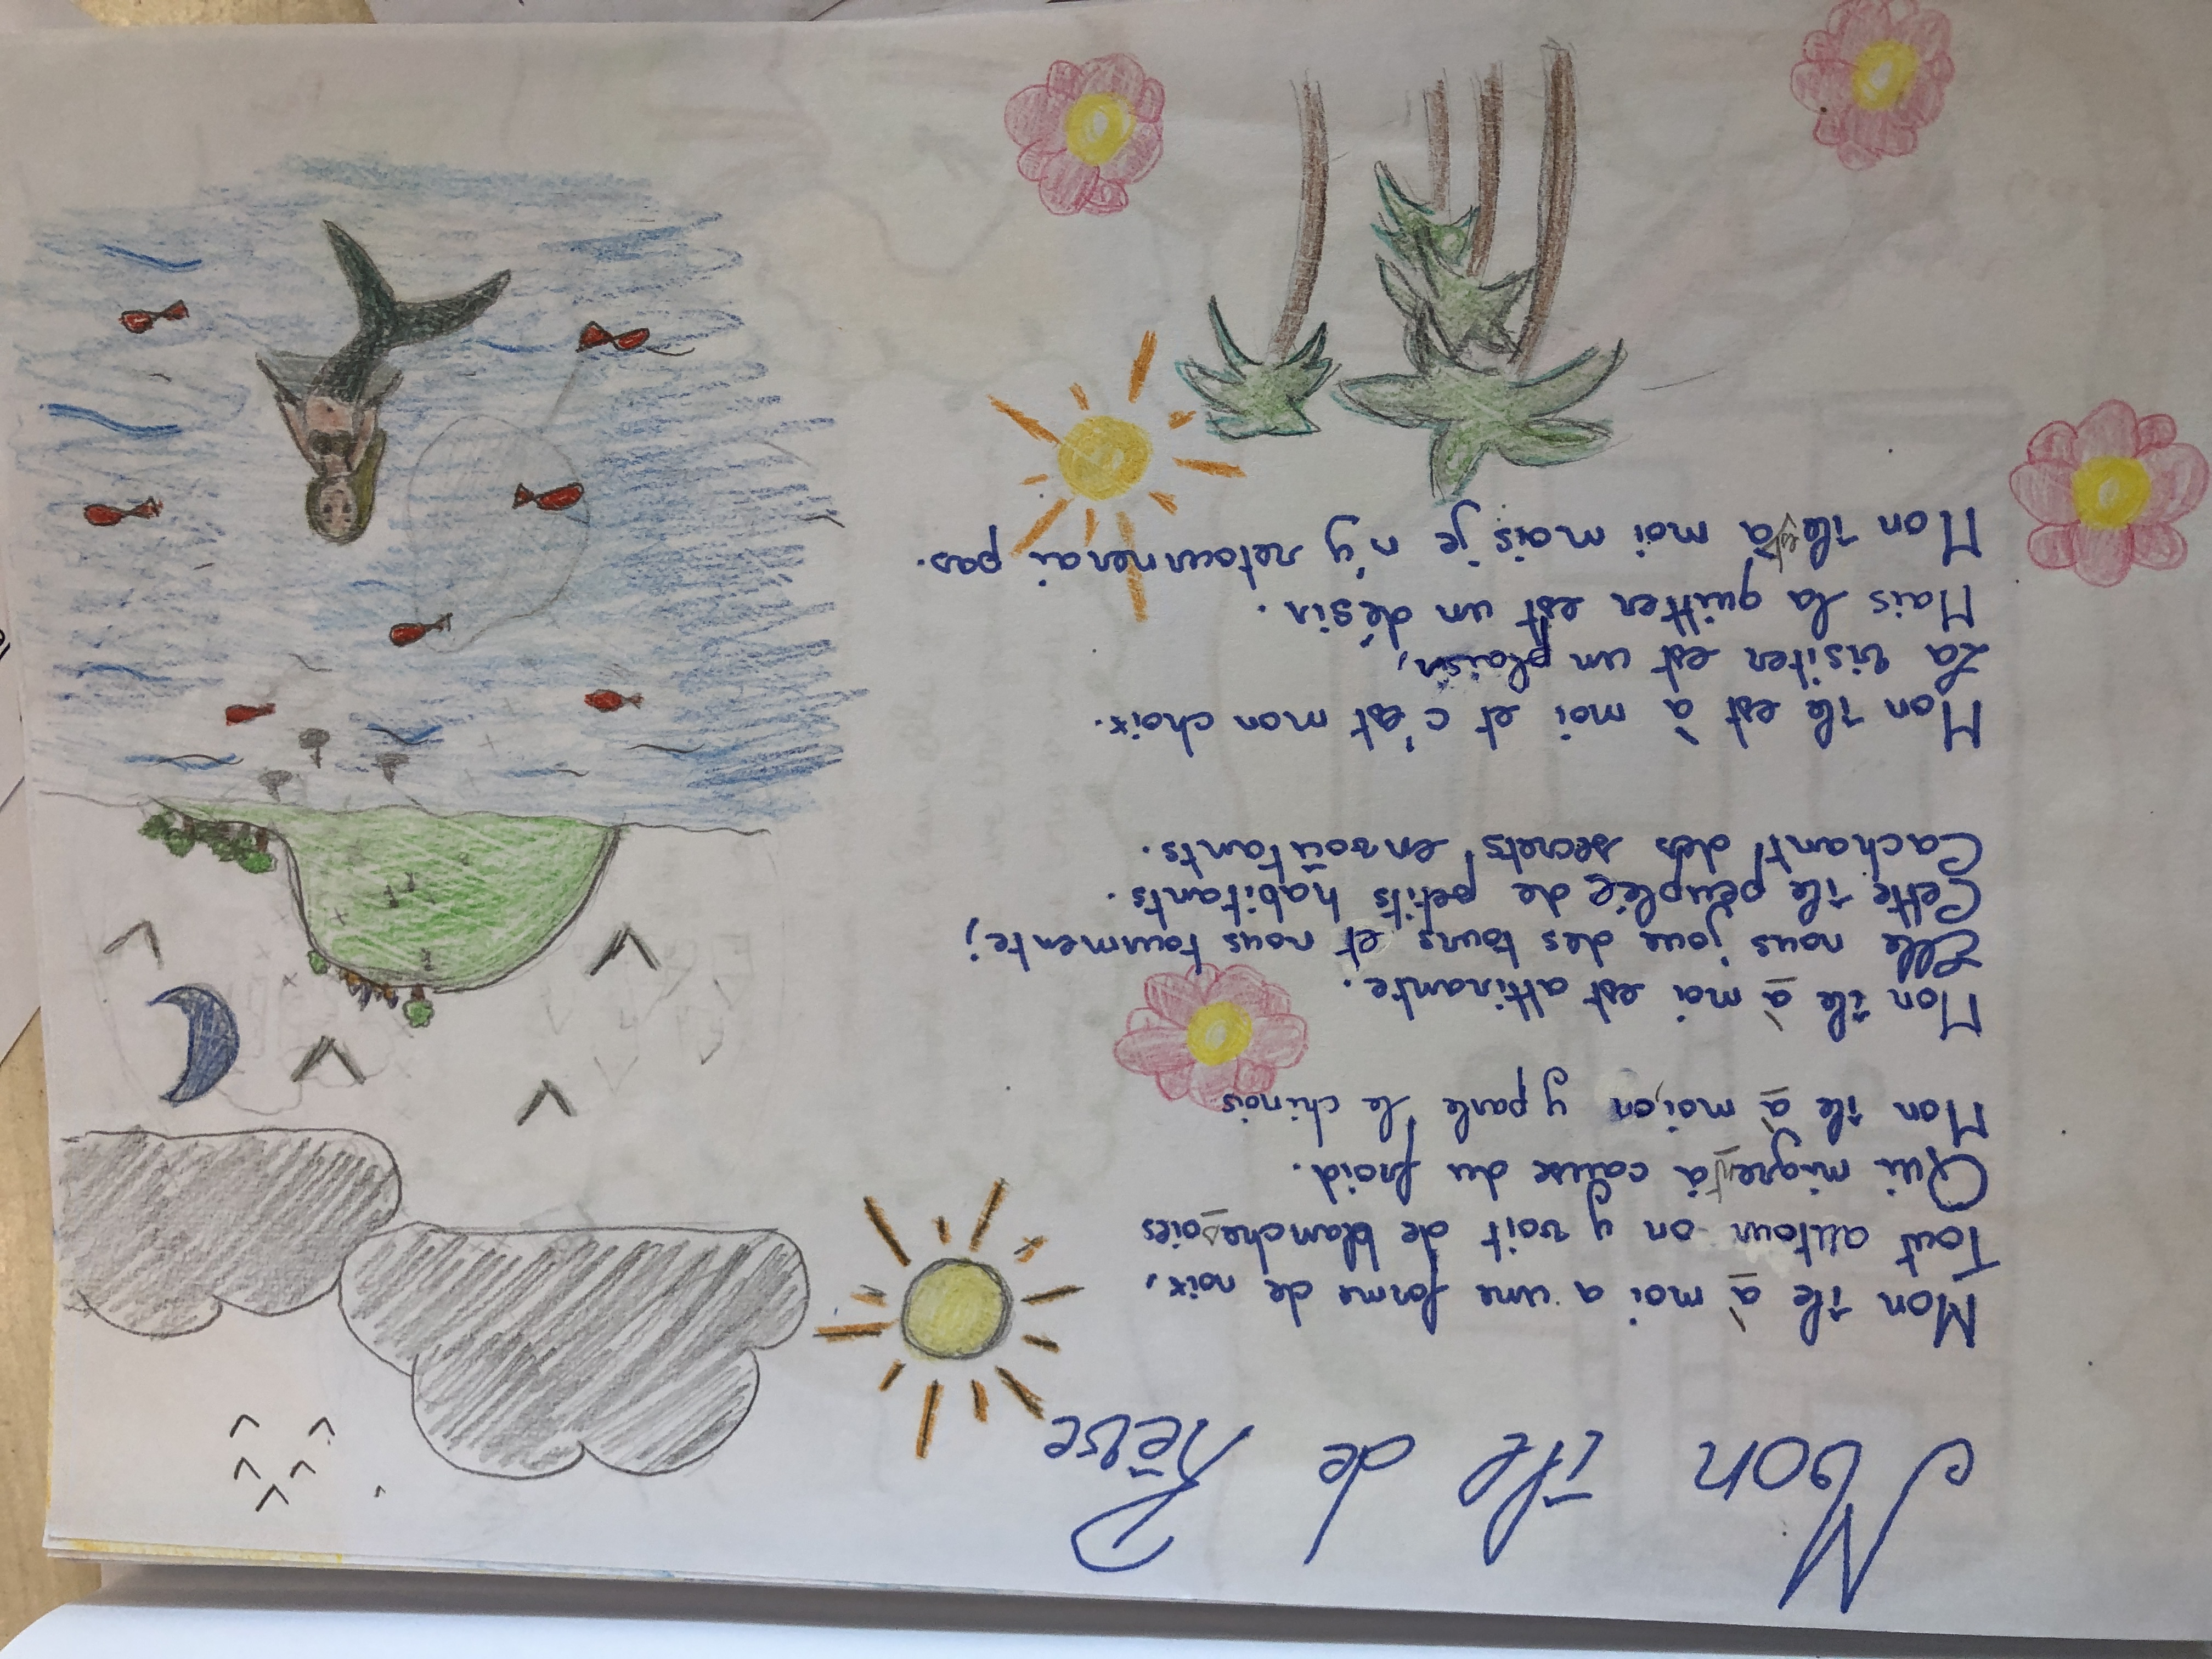 Mon île de Rêve
Mon île à moi a une forme de noix,
Tout autour on y voit de blanche oies
Qui migre à cause du froid.
Mon île à moi, on y parle le chinois
Mon île à moi est attirante.
Elle nous joue des tours et nous tourmente;
Cette île peuplée de petits habitants.
Cachant des secrets envoûtants.
Mon île est à moi et c'est mon choix.
La visiter est un plaisir,
Mais la quitter est un désir.
Mon île à moi mais je n'y retournerai pas.